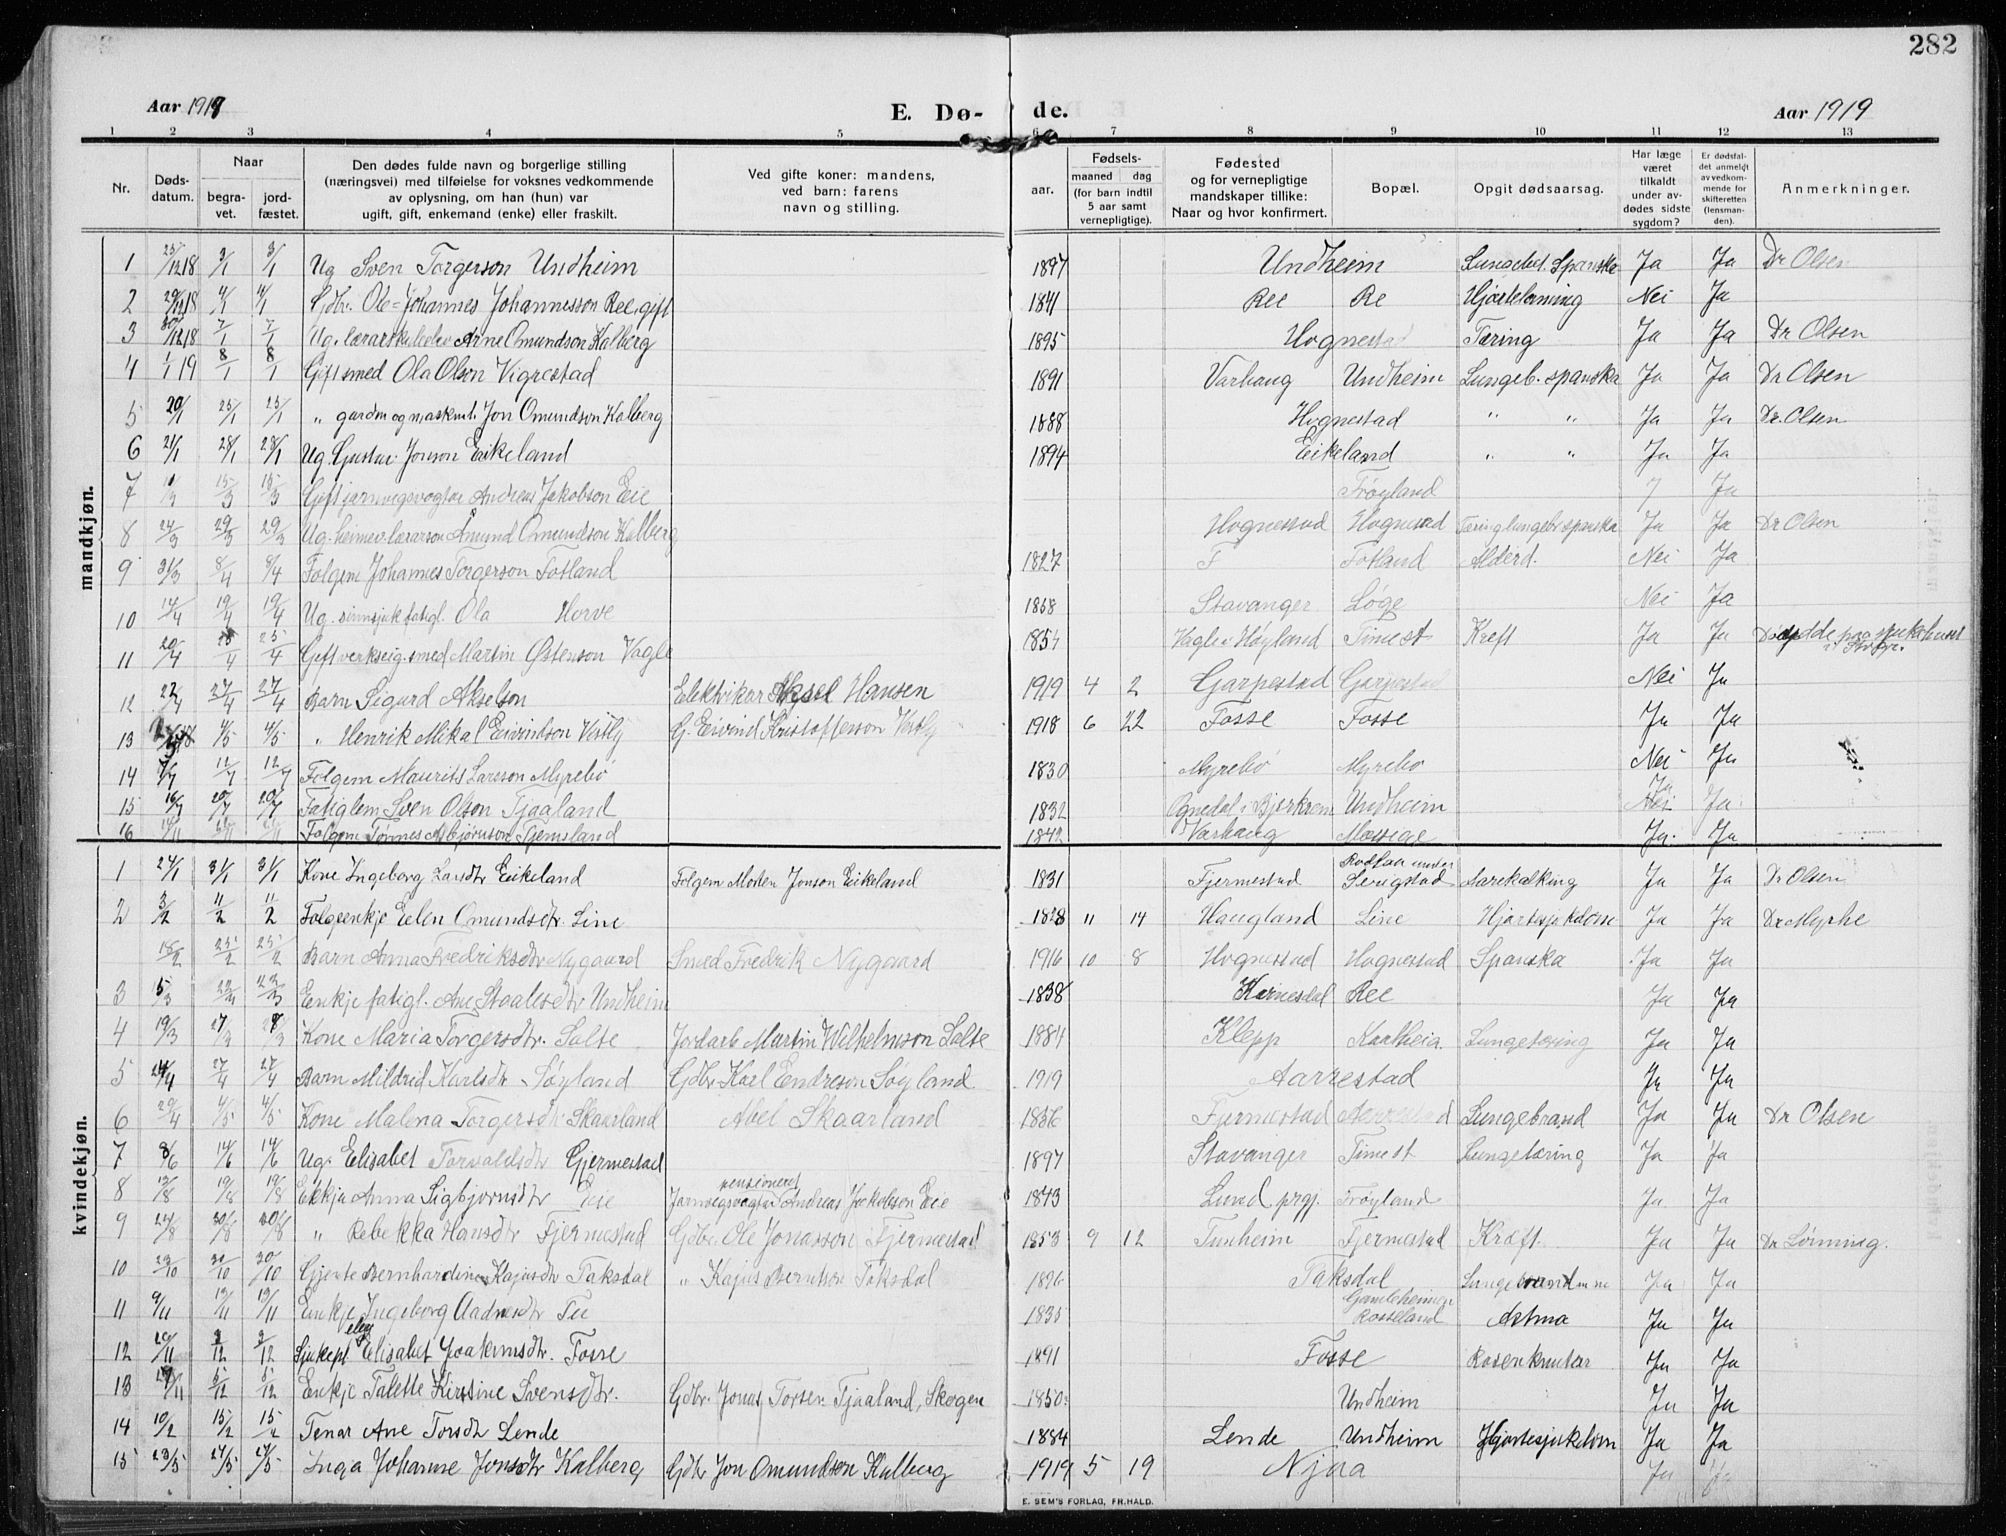 282
Aar 1919 E. Dø- de. Aar 1919
1 2 3 4 5 6 7 8 9 10 11 12 13
Nr. Døds-datum. Naar begra-vet. jord-fæstet. Den dødes fulde navn og borgerlige stilling (næringsvei) med tilføielse for voksnes vedkommende av oplysning, om han (hun) var ugift, gift, enkemand (enke) eller fraskilt. Ved gifte koner: mandens, ved barn: farens navn og stilling. aar. Fødsels- maaned dag (for barn indtil 5 aar samt vernepligtige). Fødested og for vernepligtige mandskaper tillike: Naar og hvor konfirmert. Bopæl. Opgit dødsaarsag. Har læge været tilkaldt under av-dødes sidste sygdom? Er dødsfal-det anmeldt av vedkom-mende for skifteretten (lensman-den). Anmerkninger.
mandkjøn.
1 3/1 3/1 Ug Sven Torgerson Undheim 1897 Undheim Spanska Ja Ja Dr Olsen
2 29/12 18 4/1 4/1 Gdbr. Ole-Johannes Johannesson Ree, gift 1841 Ree Re Hjartelaming Nei Ja
3 30/12 18 7/1 7/1 Ug. Arne Omundson Kalberg 1895 Hognestad Tæring Ja Ja Dr Olsen
4 1/1 19 8/1 8/1 Gift smed Ola Olson Vigrestad 1891 Varhaug Undheim Lungeb. spanska Ja Ja Dr Olsen
5 20/1 25/1 25/1 " Jon Omundson Kalberg 1888 Hognestad " " Ja Ja Dr. Olsen
6 21/1 28/1 28/1 Ug. Gustav Jonson Eikeland 1894 Eikeland " " Ja Ja
7 15/3 15/3 Gift jarnvegsvogtar Andreas Jakobson Eie Frøyland Ja
8 24/3 29/3 29/3 Ug. Åmund Omundson Kalberg Hognestad Hognestad Tæring lungebr spanska Ja Ja Dr Olsen
9 31/3 8/4 8/4 Folgem Johannes Torgerson Fotland 1827 F Fotland Alderd. Nei Ja
10 14/4 19/4 19/4 Ug. sinnsjuk fatigl. Ola Herve 1858 Stavanger Løge Nei Ja
11 20/4 25/4 25/4 Gift verkseig. smed Martin Østenson Vagle 1854 Vagle i Høyland Time st Kreft Ja Ja paa sjukehuset
12 22/4 27/4 27/4 Barn Sigurd Akselson Elektriker Aksel Hansen 1919 4 2 Garpestad Garpestad Nei Ja
13 4/5 4/5 " Henrik Mikal Eivindson Vestly G. Eivind Kristofferson Vestly 1918 6 22 Fosse Fosse Ja Ja
14 7/7 12/7 12/7 Folgem Maurits Larsson Myrebø 1830 Myrebø Myrebø Nei Ja
15 16/7 20/7 20/7 Fatiglem Sven Olson Tjaaland 1832 Ognedal i Bjerkrem Undheim Ja Nei Ja
16 Folgem Tønnes Asbjørnson Tjemsland 1842 Varhaug Mossige Ja. Ja
kvindekjøn.
1 24/1 31/1 31/1 Kone Ingeborg Larsdtr Eikeland Folgem Morten Jonson Eikeland 1831 Fjermestad under Serigstad Aarekalking Ja Ja Dr Olsen
2 3/2 11/2 11/2 Folgeenkje Elen Omundsdtr. Line 1828 11 14 Haugland Line Hjartesjukdom Ja Ja Dr Myhre
18/2 25/2 25/2 Barn Anna Fredriksdtr Nygaard Smed Fredrik Nygaard 1916 10 8 Hognestad Hognestad Spanska Ja Ja
3 5/3 Enkje fatigl. Ane Staalesdtr Undheim 1838 Ree Ja Ja
4 19/3 27/3 Kone Maria Torgersdtr. Salte Jordarb Martin Wilhelmson Salte 1884 Klepp Lungetæring Ja Ja
5 24/4 27/4 27/4 Barn Mildrid Karlsdtr Søyland Gdbr Karl Endreson Søyland 1919 Aarrestad Ja Ja
6 29/4 4/5 4/5 Kone Malena Torgersdtr Skaarland Abel Skaarland 1856 Fjermestad Aarrestad Lungebrand Ja Ja Dr Olsen
7 8/6 14/6 14/6 Ug. Elisabet Torvaldsdtr Gjermestad 1897 Stavanger Time st Lungetæring Ja Ja
8 13/8 19/8 19/8 Enkje Anna Sigbjørnsdtr Eie pensioneret Jarnvegsvogtar Andreas Jakobson Eie 1843 Lund prgj. Frøyland Ja Ja
9 24/8 30/8 30/8 " Rebekka Hansdtr Fjermestad Gdbr. Ole Jonasson Fjermestad 1853 9 12 Tunheim Fjermestad Kræft Ja Ja Dr Lønning.
10 23/10 30/10 30/10 Gjente Bernhardine Kajusdtr Taksdal " Kajus Berntson Taksdal 1896 Taksdal Ja Ja
11 9/11 19/11 19/11 Enkje Ingeborg Aadnesdtr Tu 1835 Gamleheimen Rosseland Astma Ja Ja
12 3/12 3/12 Sjukepl elev Elisabet Joakimsdtr. Fosse 1891 Fosse Ja Ja
13 5/12 5/12 Enkje Talette Kirstine Svensdtr. Gdbr. Jonas Torsen Tjaaland, Skogen 1850 Undheim Ja Ja
14 10/2 15/2 15/2 Tenar Ane Torsdtr Lende 1884 Lende Undheim Hjartesjukdom Ja Ja
15 23/5 27/5 27/5 Inga Johanne Jonsdtr Kalberg Gdbr Jon Omundson Kalberg 1919 5 19 Njaa Ja Ja
E. SEM'S FORLAG, FR.HALD.